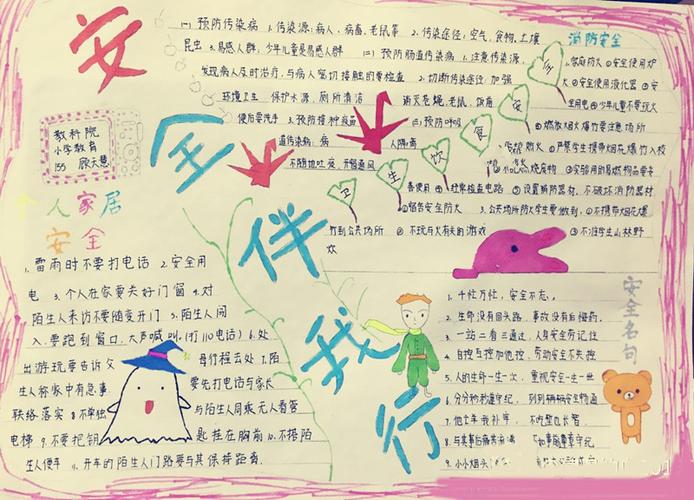 安全伴我行
(一) 预防传染病 1.传染源:病人、病畜、老鼠等 2.传染途径:空气、食物、土壤
昆虫 3.易感人群:少年儿童是易感人群 (二) 预防肠道传染病 1.注意传染源,
发现病人及时治疗,与病人密切接触的要检查 2.切断传染途径:加强
环境卫生 保护水源,厕所清洁 消灭苍蝇、老鼠、蟑螂
使用要洗手 3.预防接种疫苗 (三)预防呼吸
道传染病:病人隔离
不随地吐痰,开窗通风
卫生饮食安全
消防安全
1.家庭防火 ①安全使用炉
火 ②安全使用液化器 ③安
全用电 ④少年儿童不要玩火
⑤燃放烟火爆竹要注意场所
①严禁学生携带烟花爆竹入校
烧废物 ③实验用的易燃物品要专
④经常检查电路 ⑤设置消防器材,不破坏消防器材
3.公共场所防火学生要做到:①不携带烟花爆
竹到公共场所 ②不玩与火有关的游戏 ③不准学生山林野
炊
教科院
小学教育
153 顾天慧
个人家居
安全
1.雷雨时不要打电话 2.安全用
电 3.个人在家要关好门窗 4.对
陌生人来访不要随便开门 5.陌生人闯
入,要跑到窗口,大声喊叫.(打110电话) 6.外
出游玩要告诉父母何程去处 7.陌
生人称家中有急事,要先打电话与家长
联络落实 8.不单独与陌生人同乘无人看管
电梯 9.不要把钥匙挂在胸前 10.不搭陌
生人便车 11.开车的陌生人门路要与其保持距离.
安全名句
1.千忙万忙,安全不忘。
2.生命没有回头路,事故没有后悔药。
3.一站二看三通过,人身安全劳记住
4.自控与控加他控,劳动安全不失控
5.人的生命一生一次,重视安全一生一世
6.分分秒秒遵守纪,列列辆辆安全畅通
7.
8.
9.小小烟头